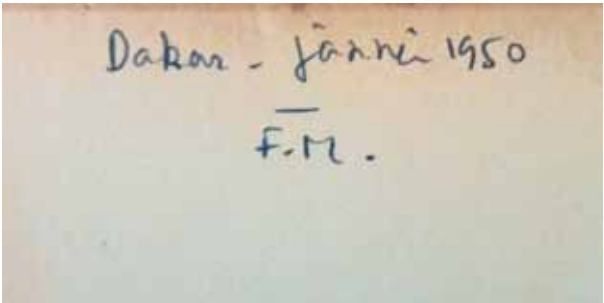 Dakar - janvier 1950
F.M.